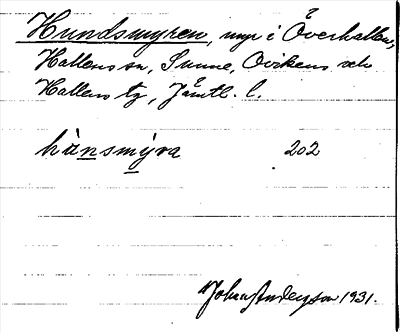 Hundsmyren, myr i Överhallen,
Hallens sn, Sunne, Ovikens och
Hallens tg, Jämtl. l.
hùnsmýra 202
Johan Anderson 1931.